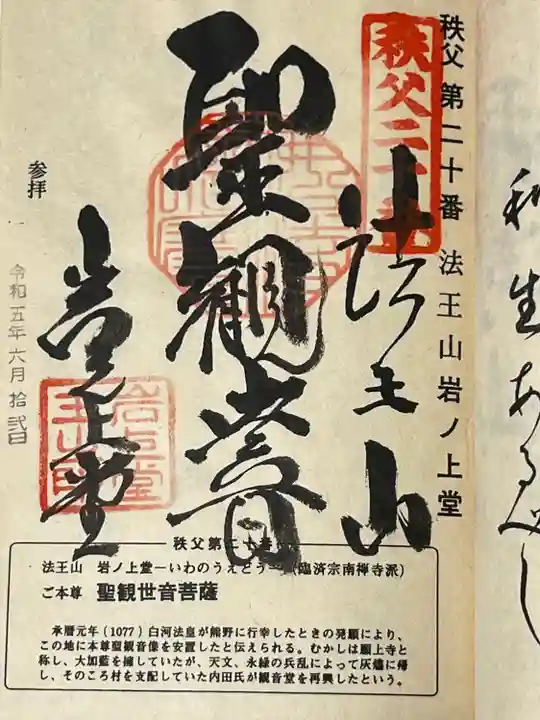 秩父第二十番 法王山岩ノ上堂
秩父二十番
法王山
聖観音
岩之上堂
参拝
令和五年六月拾弐日
秩父第二十番
法王山 岩ノ上堂―いわのうえどう―(臨済宗南禅寺派)
ご本尊 聖観世音菩薩
承暦元年(1077)白河法皇が熊野に行幸したときの発願により、
この地に本尊聖観音像を安置したと伝えられる。むかしは願上寺と
称し、大加藍を擁していたが、天文、永緑の兵乱によって灰燼に帰
し、そのころ村を支配していた内田氏が観音堂を再興したという。